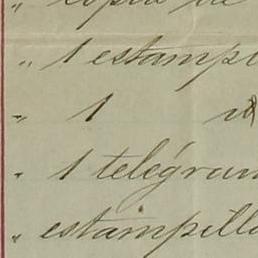 " copia de
" 1 estampi
" 1
" 1 telégram
" estampilla